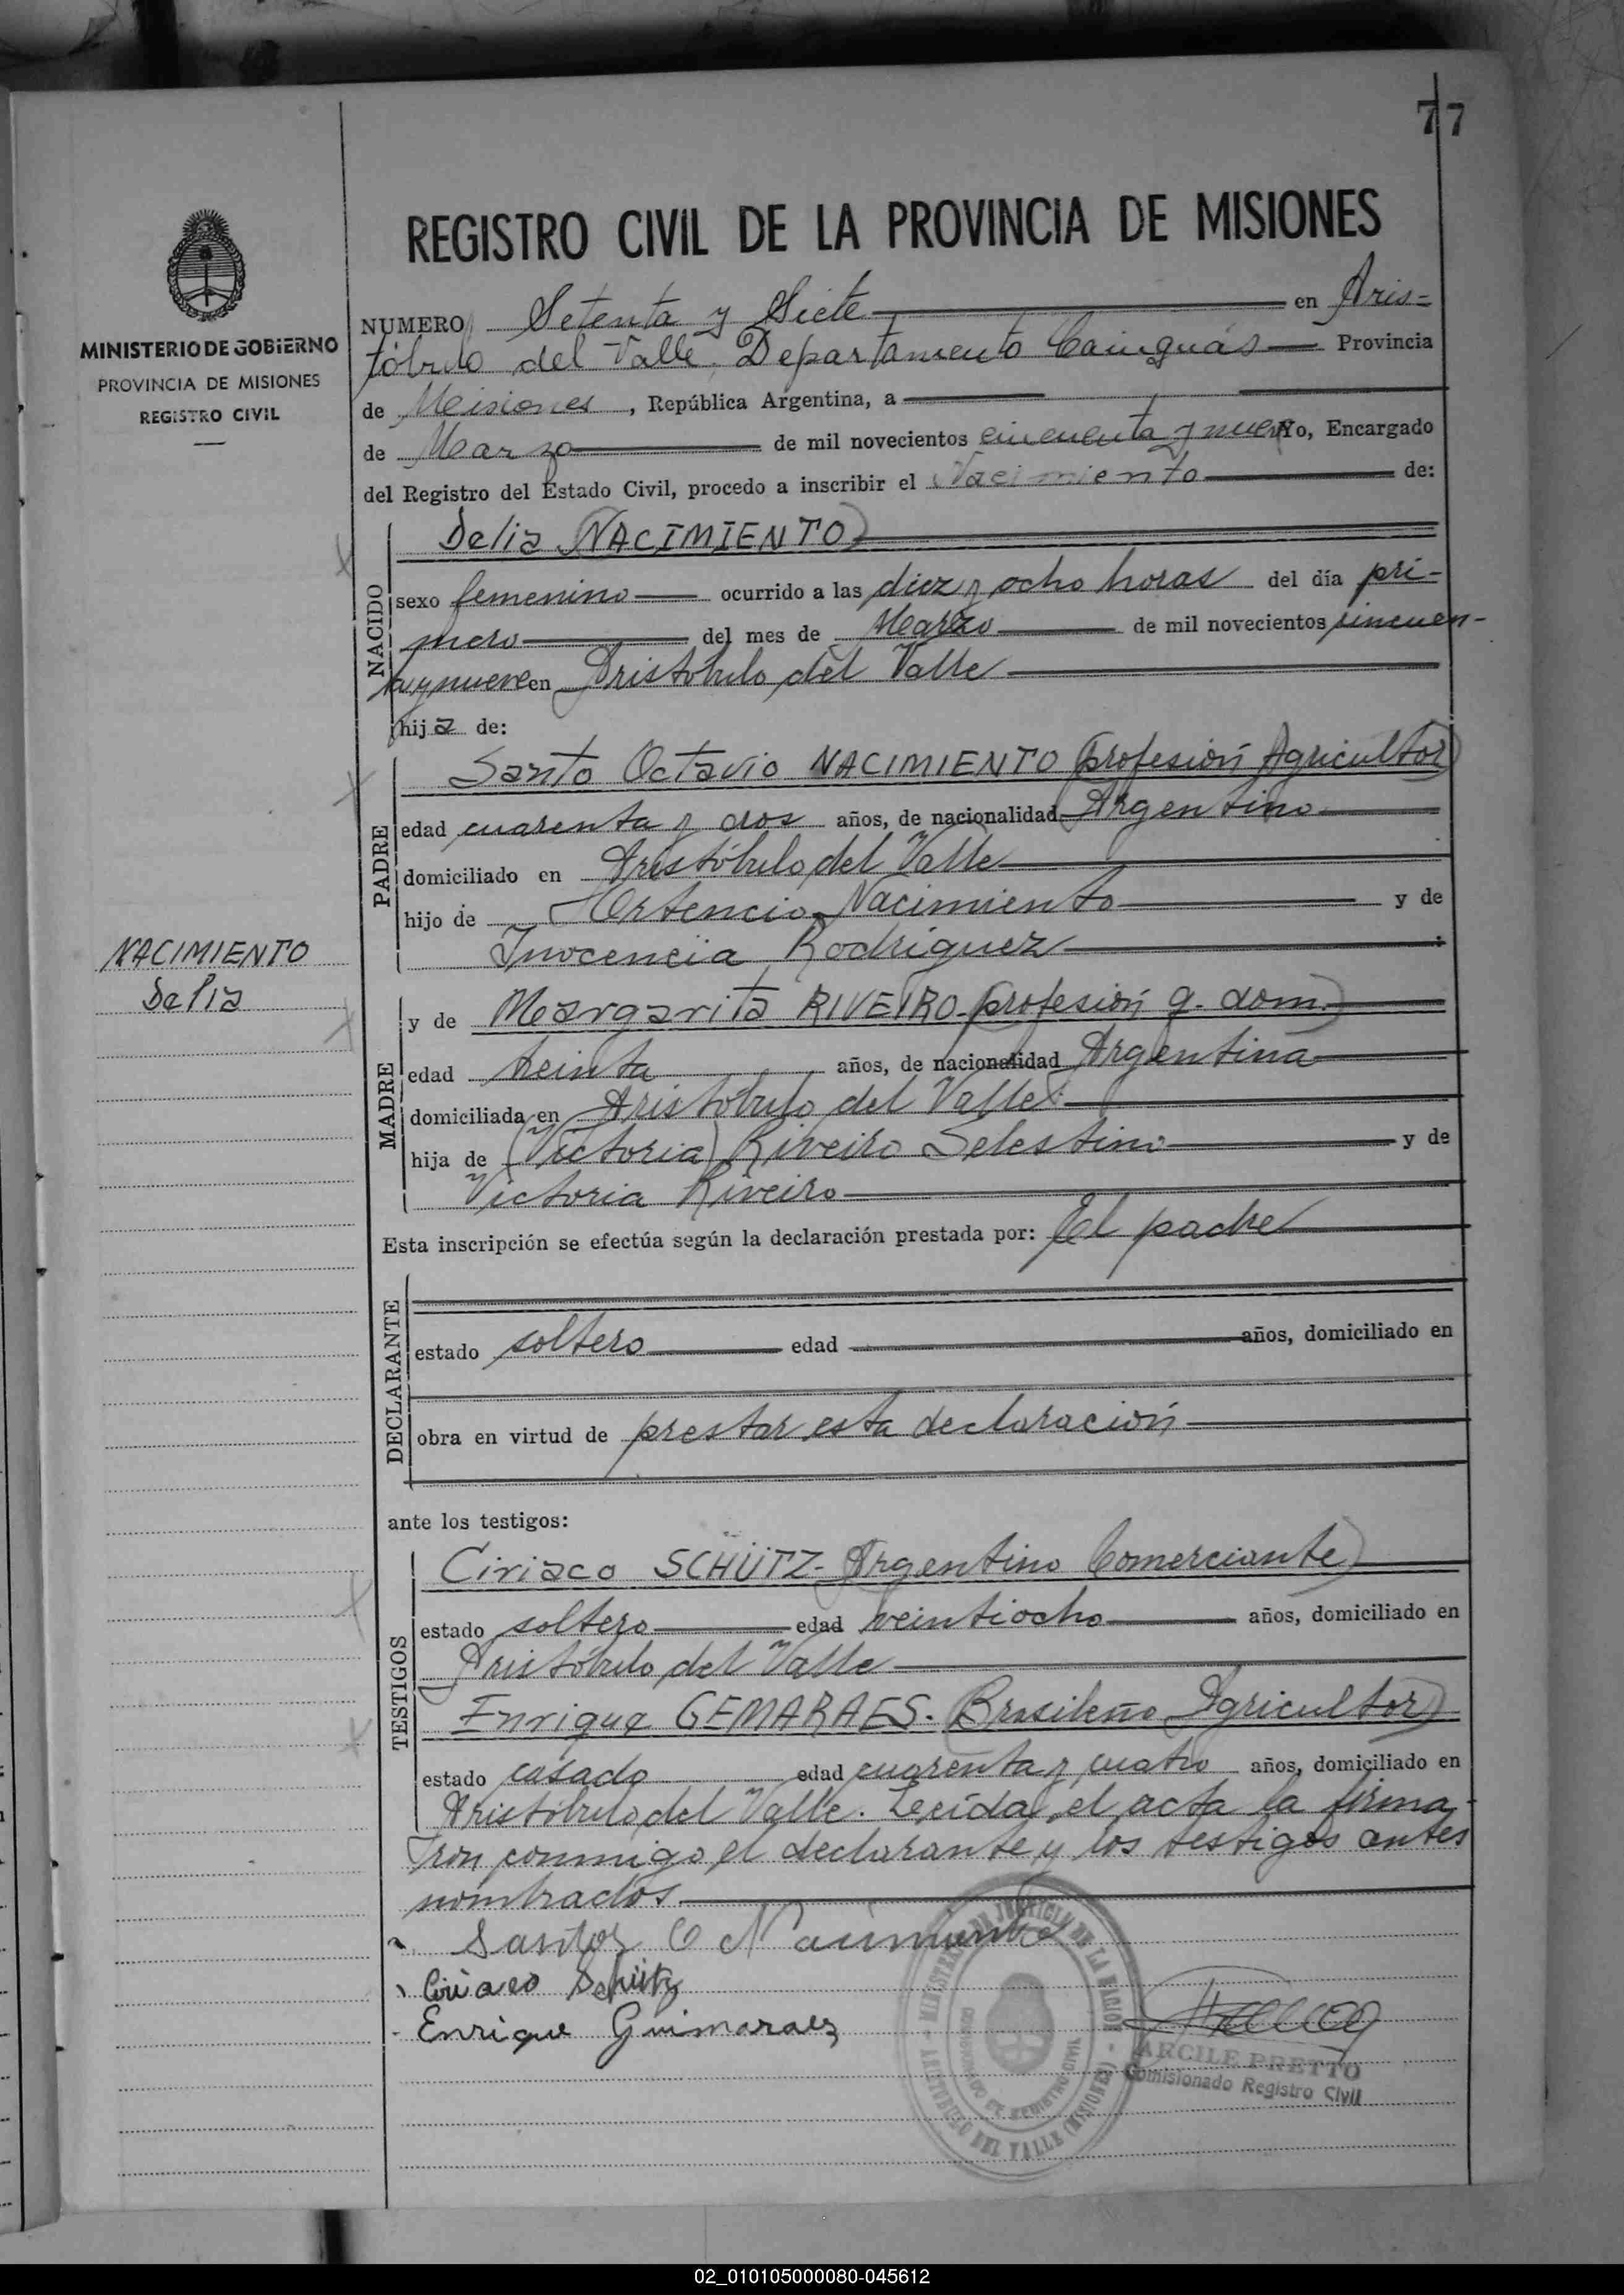 77
REGISTRO CIVIL DE LA PROVINCIA DE MISIONES
MINISTERIO DE GOBIERNO
PROVINCIA DE MISIONES
REGISTRO CIVIL
NUMERO Setenta y Siete en Aris=
tóbulo del Valle, Departamento Cainguás Provincia
de Misiones, República Argentina, a
de Marzo de mil novecientos cincuenta y nueve Yo, Encargado
del Registro del Estado Civil, procedo a inscribir el Nacimiento de:
NACIDO
Delia (NACIMIENTO)
sexo femenino ocurrido a las diez y ocho horas del día pri-
mero del mes de Marzo de mil novecientos cincuen-
ta y nueve en Aristóbulo del Valle
hija de:
PADRE
Santo Octavio NACIMIENTO (profesión Agricultor)
edad cuarenta y dos años, de nacionalidad Argentino
domiciliado en Aristóbulo del Valle
hijo de Ortencio Nacimiento y de
Inocencia Rodriguez
NACIMIENTO
Delia
MADRE
y de Margarita RIVEIRO (profesión q. dom.)
edad treinta años, de nacionalidad Argentina
domiciliada en Aristobulo del Valle
hija de (Victoria) Riveiro Selestino y de
Victoria Riveiro
Esta inscripción se efectúa según la declaración prestada por: El padre
DECLARANTE
estado soltero edad años, domiciliado en
obra en virtud de prestar esta declaración
ante los testigos:
TESTIGOS
Ciriaco SCHÜTZ- (Argentino Comerciante)
estado soltero edad veintiocho años, domiciliado en
Aristóbulo del Valle
Enrique GEMARAES. (Brasileño Agricultor)
estado casado edad cuarenta y cuatro años, domiciliado en
Aristóbulo del Valle. Leída el acta la firma-
ron conmigo el declarante y los testigos antes
nombrados.
Santos O Nacimiento
Ciriaco Schütz
Enrique Guimaraes
MINISTERIO DE JUSTICIA DE LA NACION
ARISTOBULO DEL VALLE (MISIONES)
ARCILE PRETTO
Comisionado Registro Civil
02_010105000080-045612